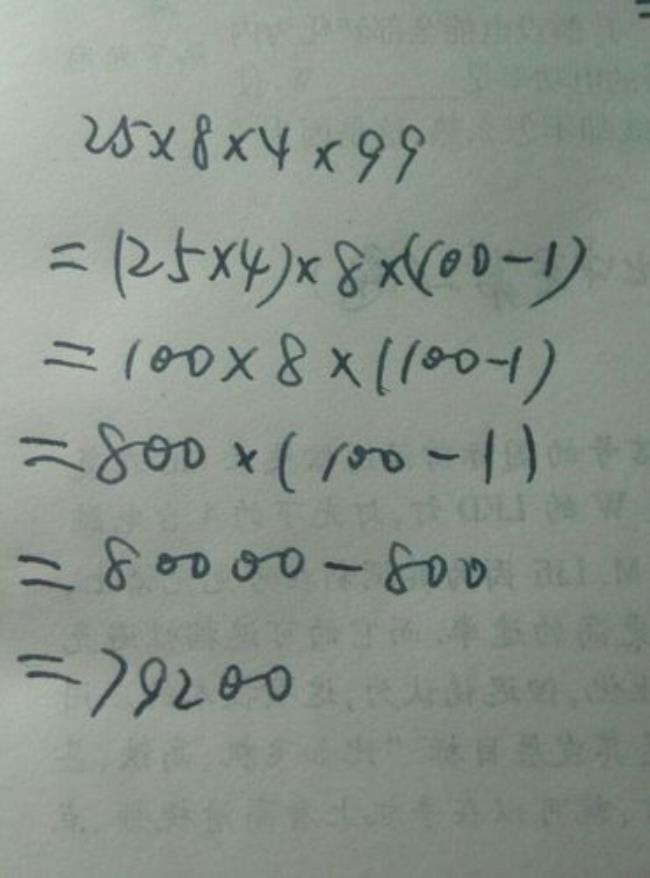 25×8×4×99
=(25×4)×8×(100-1)
=100×8×(100-1)
=800×(100-1)
=80000-800
=79200